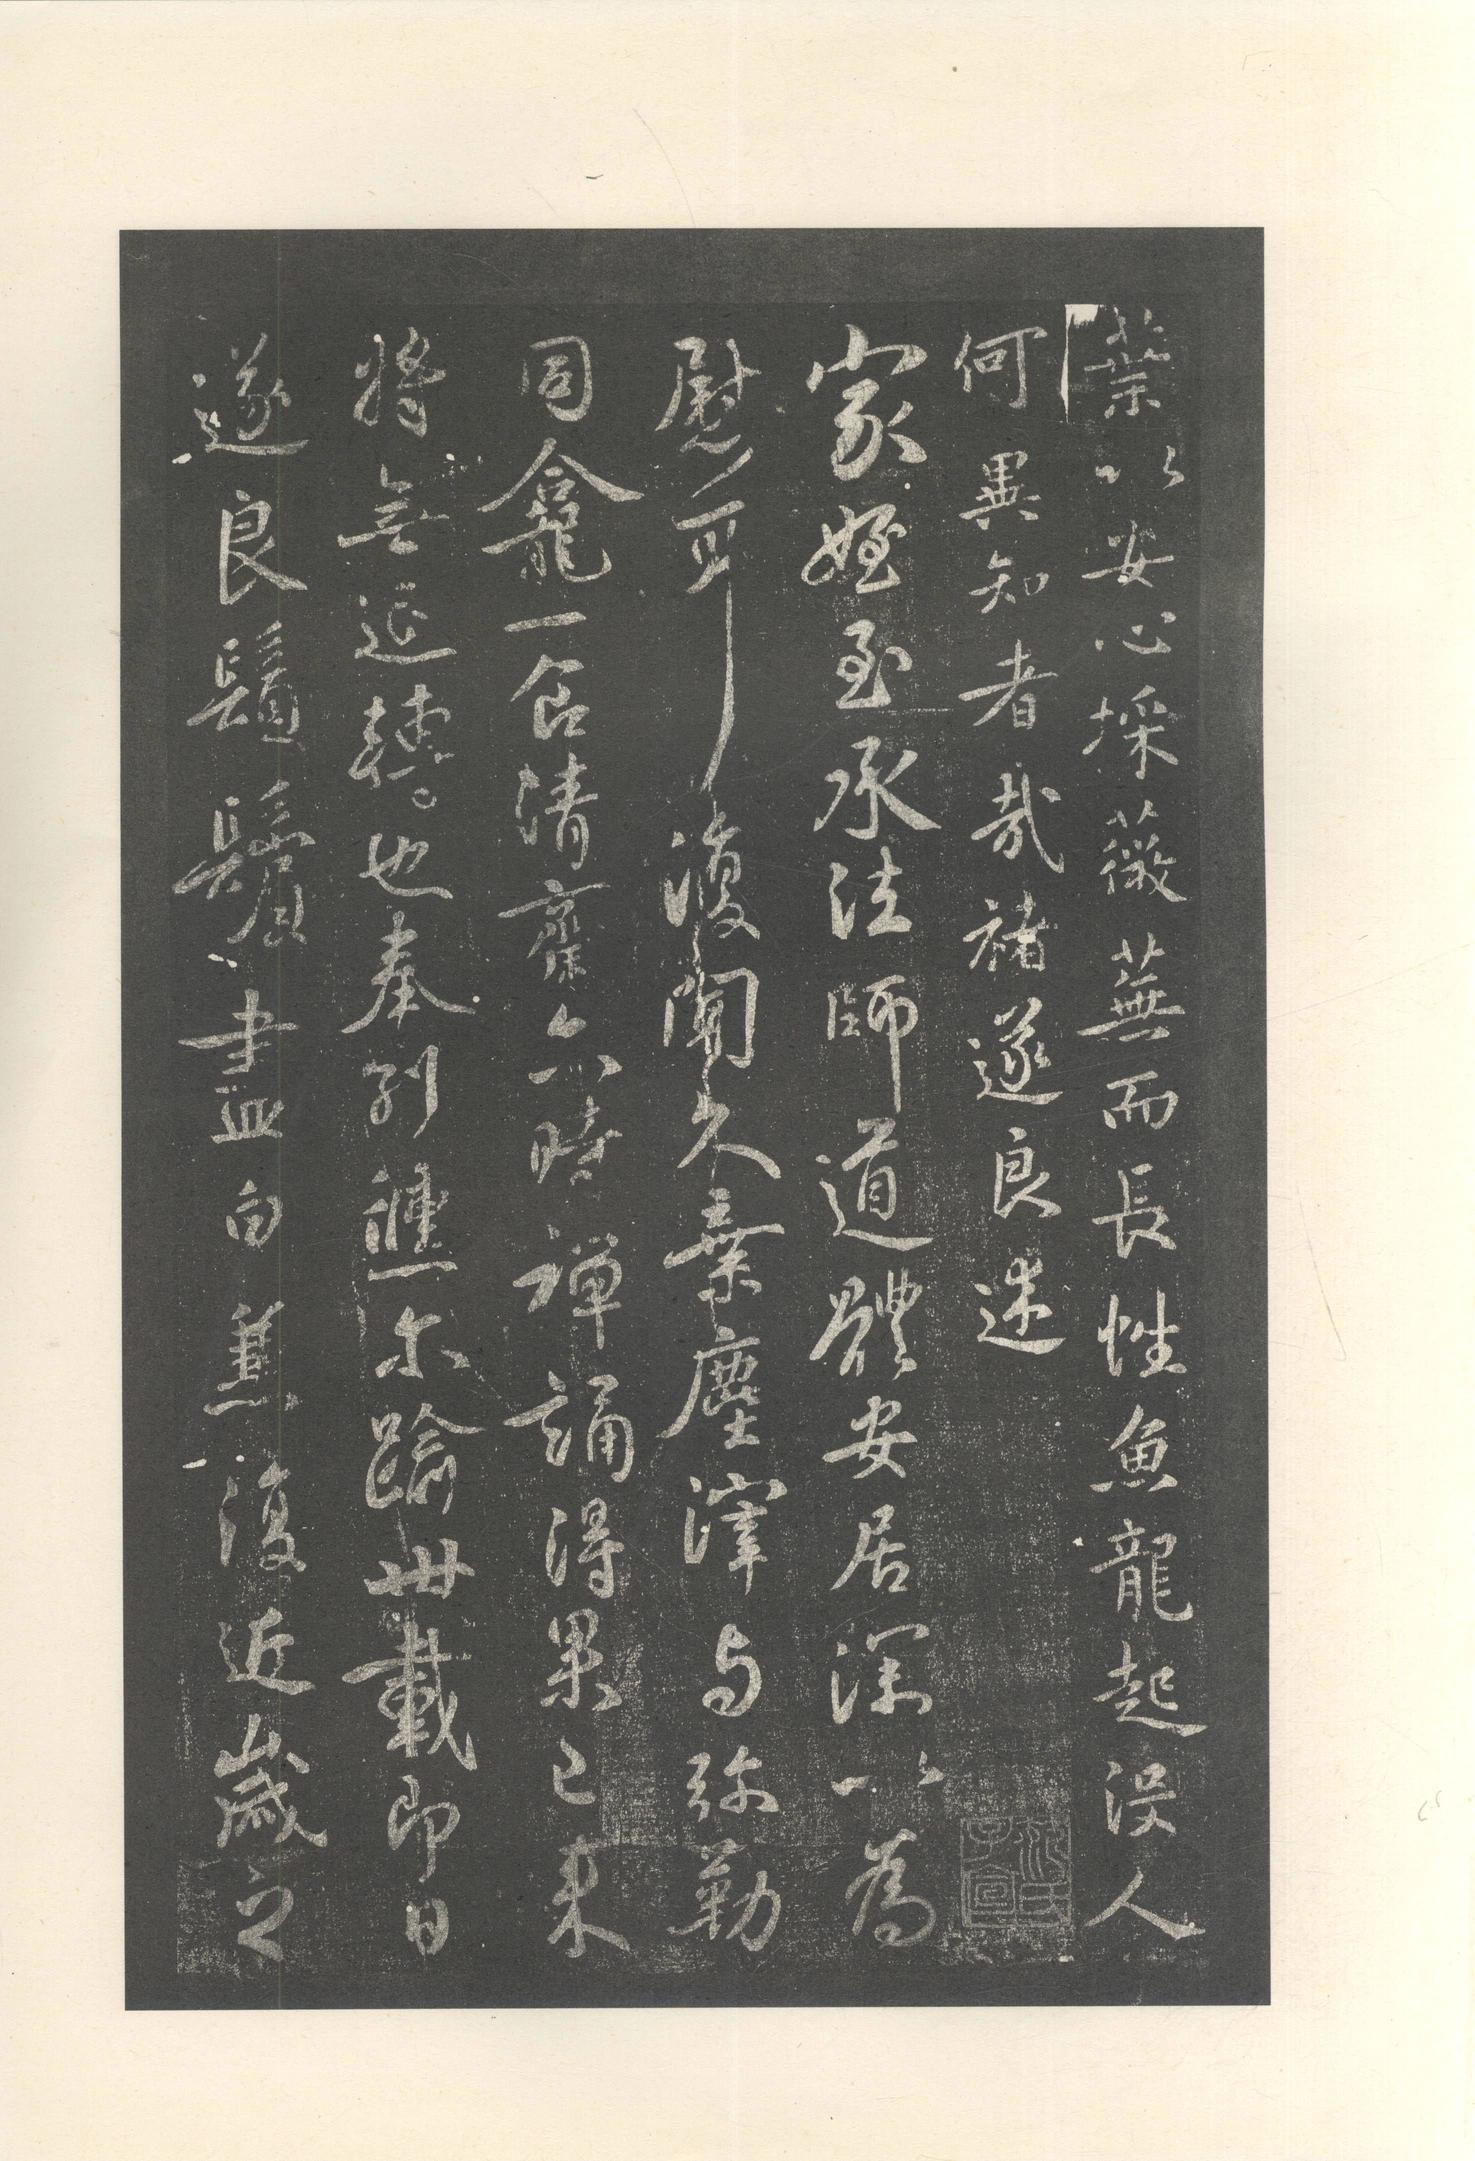 葉以安心採薇蕪而長性魚龍起沒人
何異知者哉褚遂良述
家姪至承法師道體安居深以為
慰耳復聞久棄塵滓与弥勒
同龕一食清齋六時禪誦得果已來
將無退轉也奉別倐尓踰卌載即日
遂良鬚鬢盡白兼復近歲之